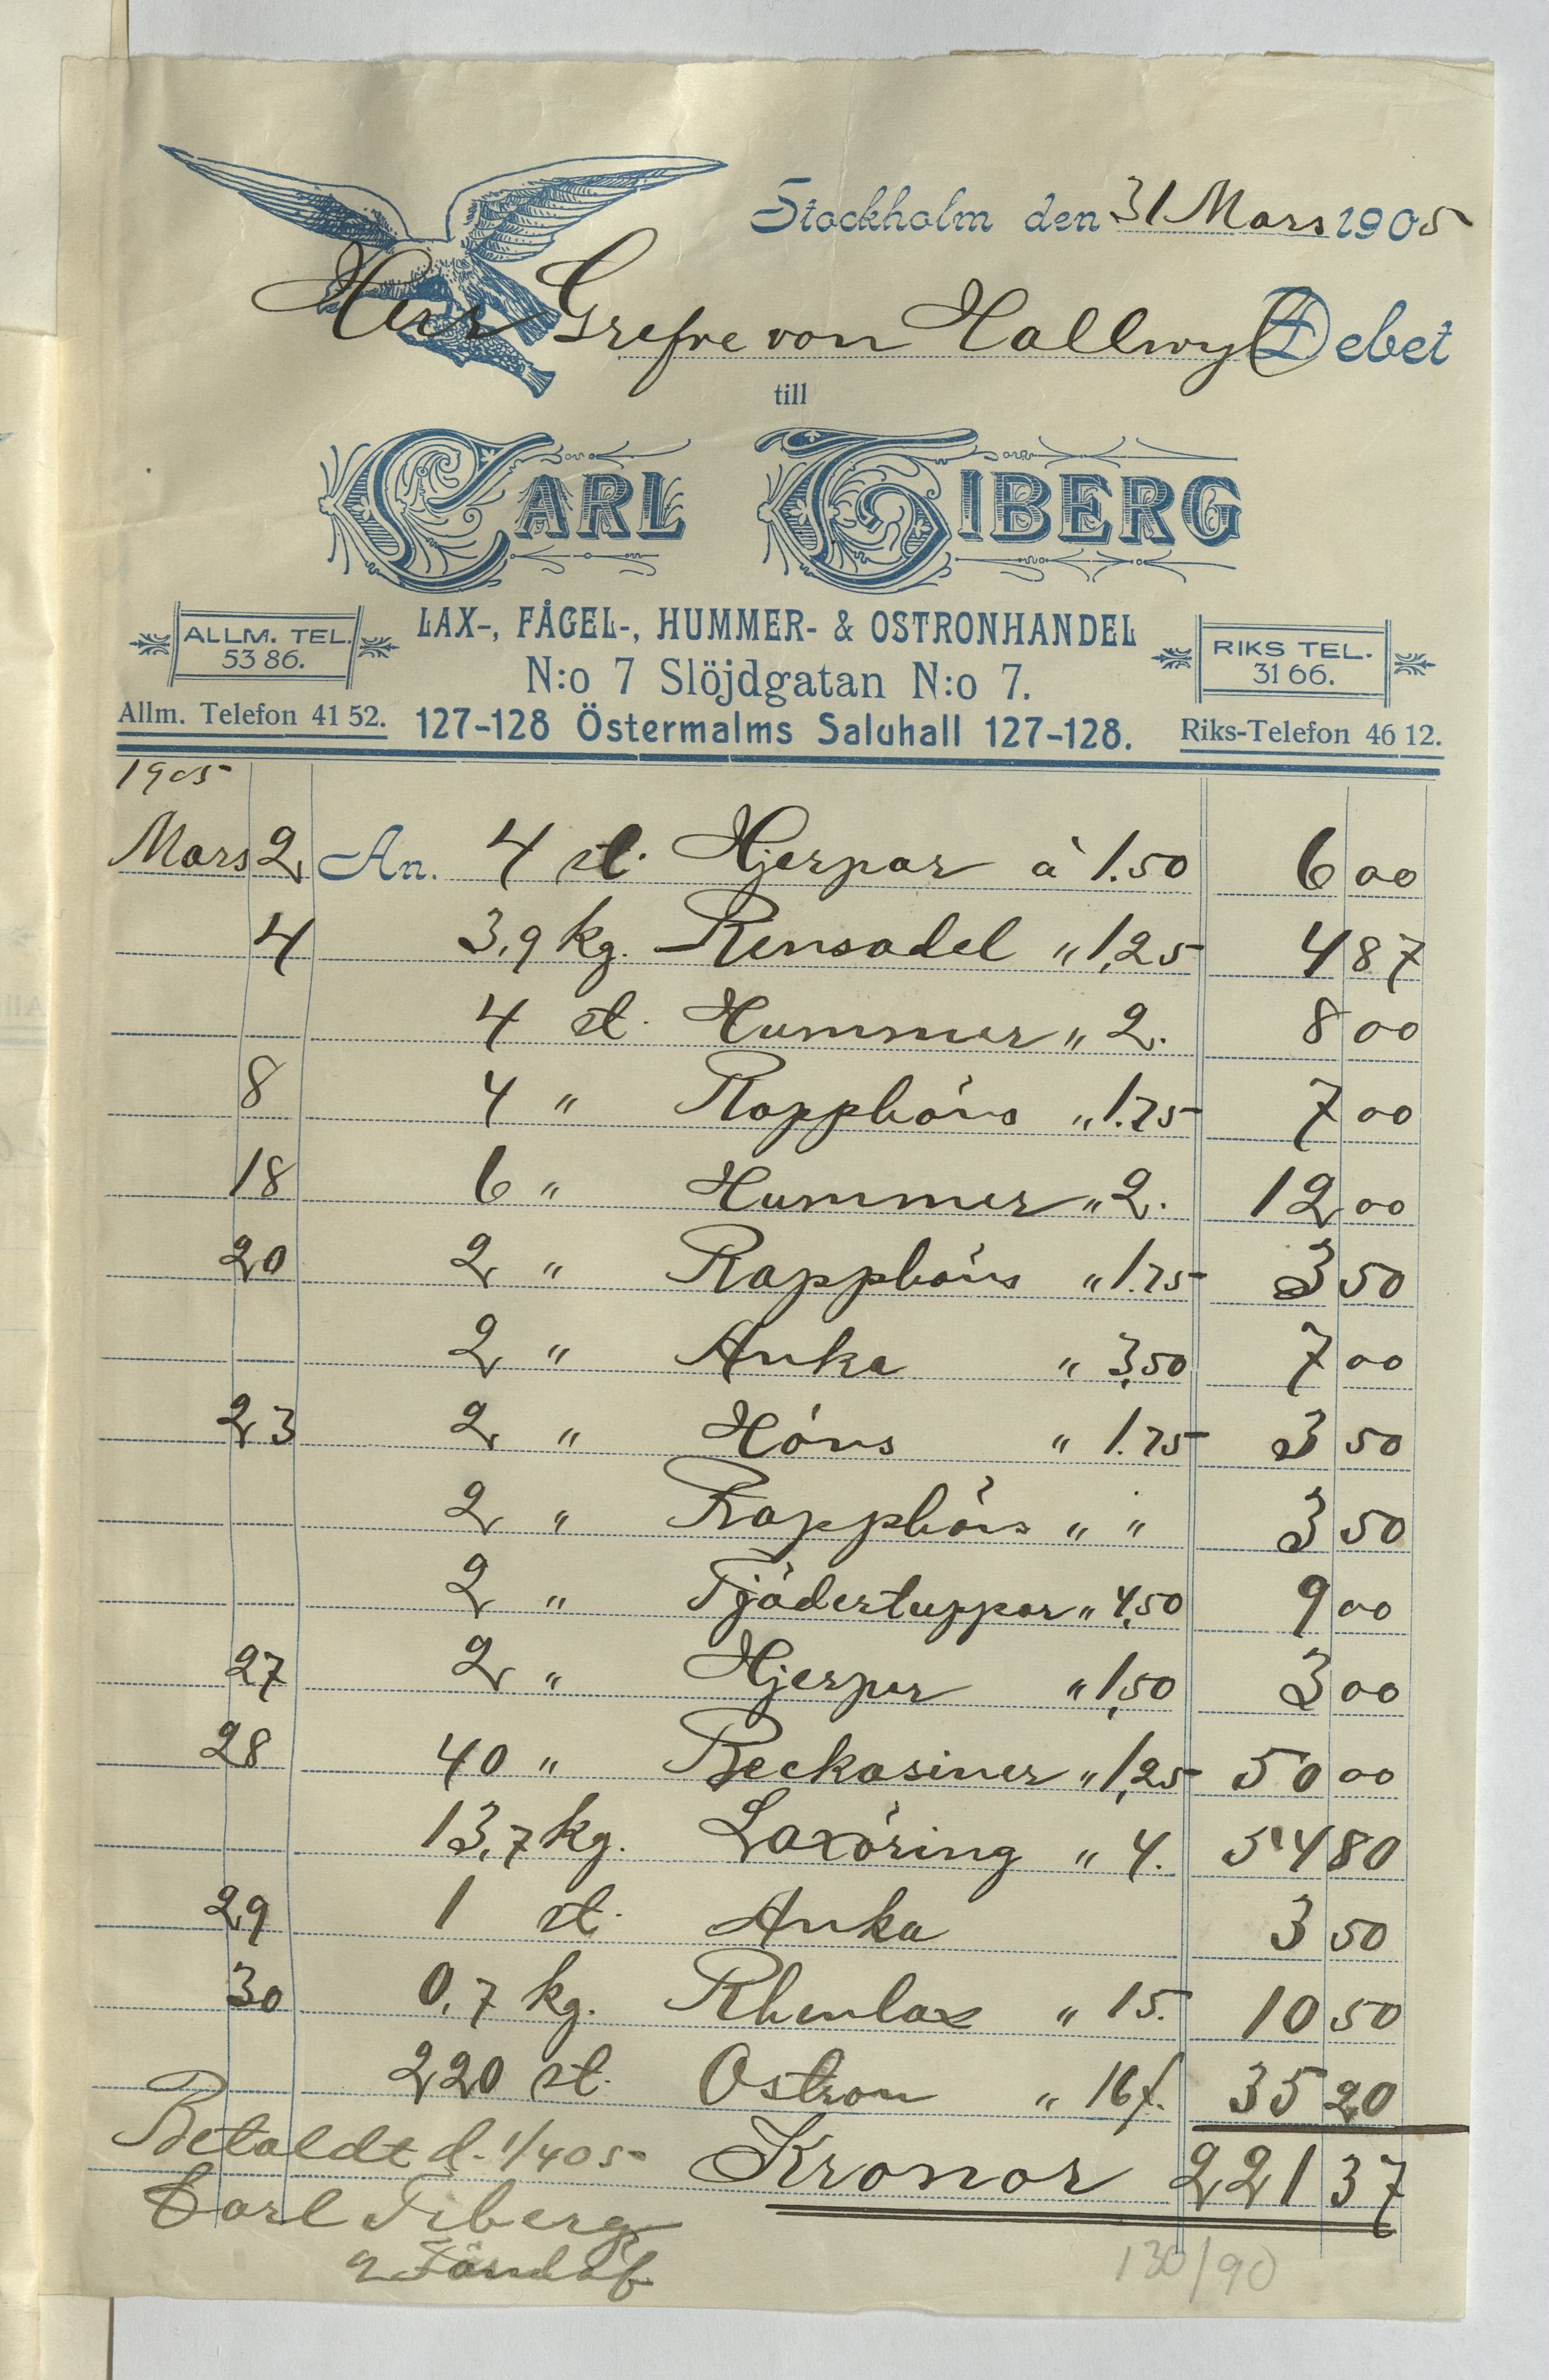 Stockholm den 31 Mars 1905
Herr Grefve von Hallwyl Debet
till
CARL TIBERG
LAX-, FÅGEL-, HUMMER- & OSTRONHANDEL
ALLM. TEL. 53 86.
RIKS TEL. 31 66.
N:o 7 Slöjdgatan N:o 7.
Allm. Telefon 41 52. 127-128 Östermalms Saluhall 127-128. Riks-Telefon 46 12.
1905
Mars 2 An. 4 st. Hjerpar à 1.50 6 00
4 3,9 kg. Rensadel " 1,25 4 87
4 st. Hummer " 2. 8 00
8 4 " Rapphöns " 1.75 7 00
18 6 " Hummer " 2. 12 00
20 2 " Rapphöns " 1.75 3 50
2 " Anka " 3,50 7 00
23 2 " Höns " 1.75 3 50
2 " Rapphöns " " 3 50
2 " Tjädertuppar " 4,50 9 00
27 2 " Hjerpar " 1,50 3 00
28 40 " Beckasiner " 1,25 50 00
13,7 kg. Laxöring " 4. 54 80
29 1 st. Anka 3 50
30 0,7 kg. Rhenlax " 15. 10 50
220 st. Ostron " 16 f. 35 20
Kronor 221 37
Betaldt d. 1/4 05
Carl Tiberg
130/90